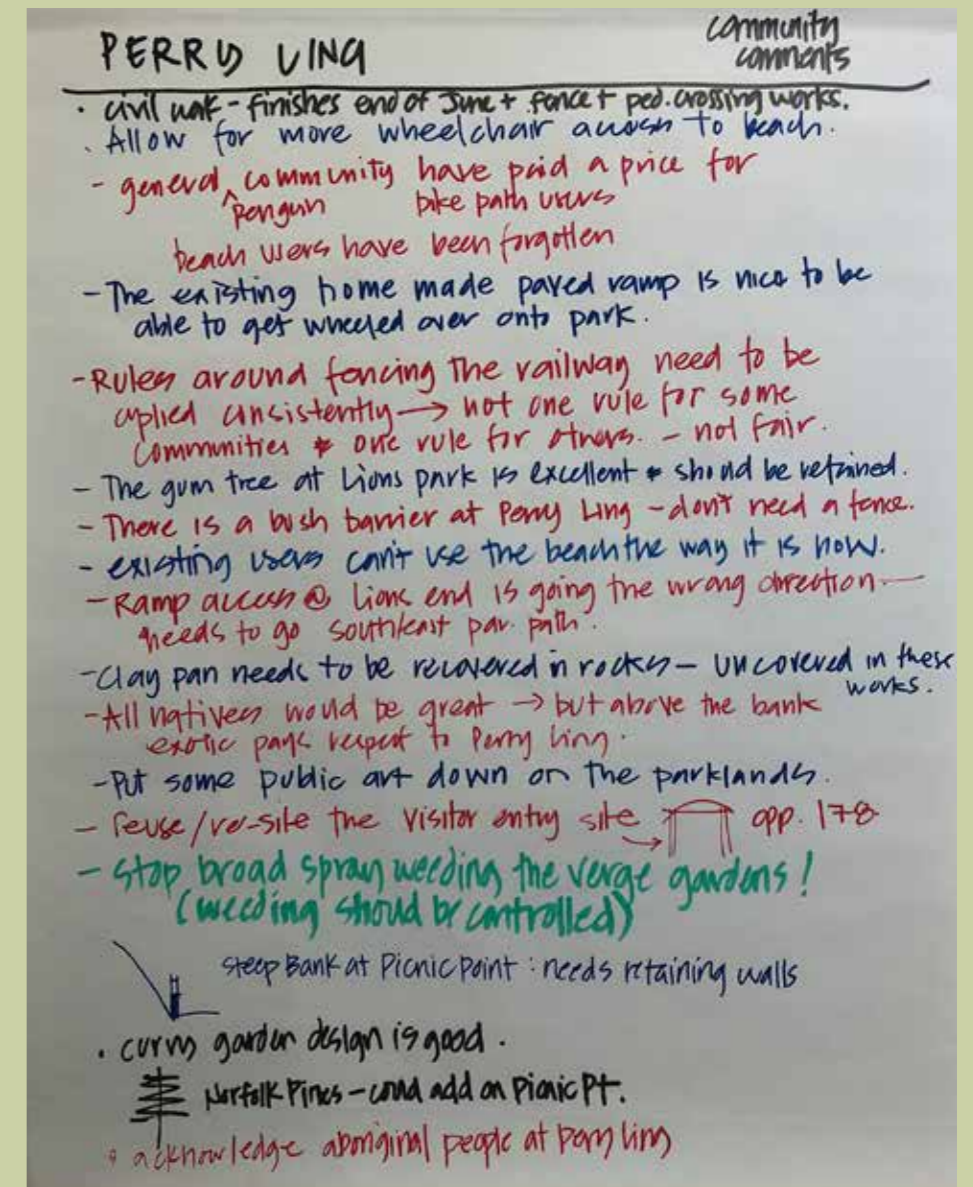 PERRY LING
community
comments
· civil wak - finishes end of June + fence + ped. crossing works.
· Allow for more wheelchair access to beach.
- general community have paid a price for
^penguin bike path users
beach users have been forgotten
- The existing home made paved ramp is nice to be
able to get wheeled over onto park.
- Rules around fencing the railway need to be
aplied consistently → not one rule for some
communities & one rule for others. - not fair.
- The gum tree at Lions park is excellent & should be retained.
- There is a bush barrier at Perry Ling - don't need a fence.
- existing users can't use the beach the way it is now.
- Ramp access @ Lions end is going the wrong direction -
needs to go south/east par. path.
- Clay pan needs to be recovered in rocks - uncovered in these
works.
- All natives would be great → but above the bank
exotic pays respect to Perry Ling.
- Put some public art down on the parklands.
- reuse/re-site the visitor entry site → opp. 178
- Stop broad spray weeding the verge gardens!
(weeding should be controlled)
steep Bank at Picnic Point : needs retaining walls
· curvy garden design is good.
Norfolk Pines - could add on Picnic Pt.
· acknowledge aboriginal people at perry ling